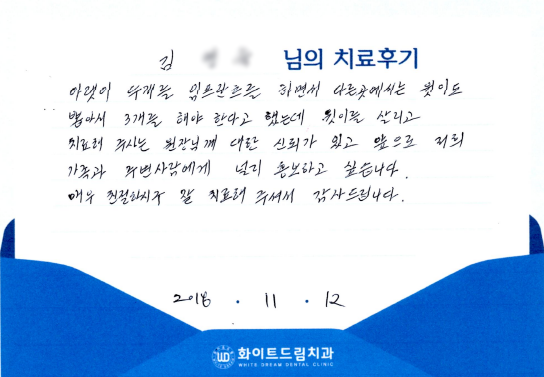 김 님의 치료후기
아랫이 두개를 임프란트를 하면서 다른곳에서는 윗이도
뽑아서 3개를 해야 한다고 했는데 윗이를 살리고
치료해 주시는 원장님께 대한 신뢰가 있고 앞으로 저희
가족과 주변사람에게 널리 홍보하고 싶습니다.
매우 친절하시구 잘 치료해 주셔서 감사드립니다.
2018 . 11 . 12
WD 화이트드림치과
WHITE DREAM DENTAL CLINIC